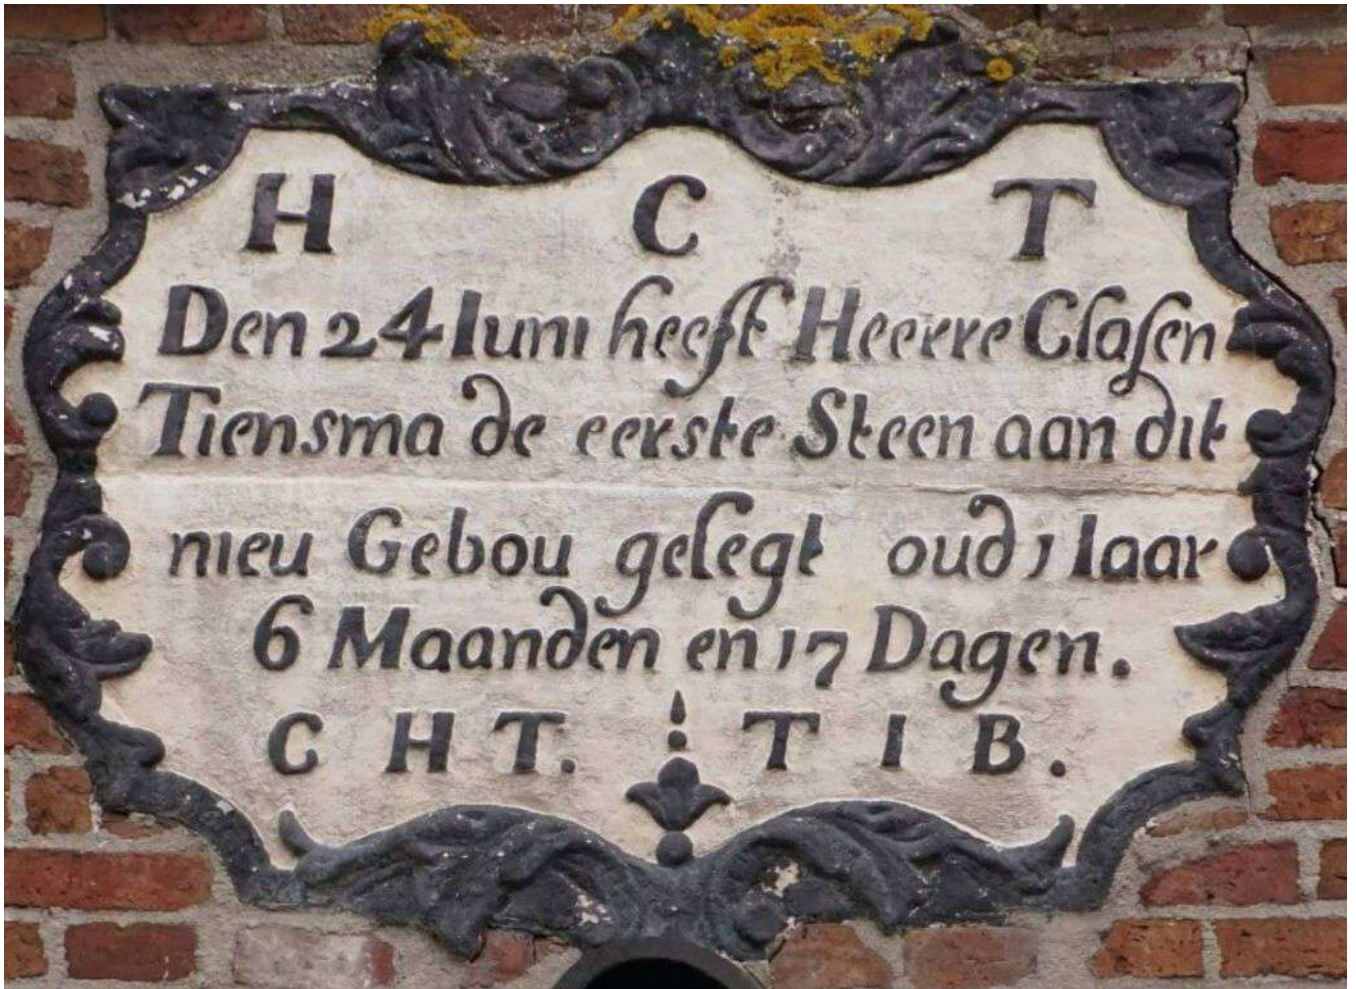 H C T
Den 24 Iuni heeft Heerre Clasen
Tiensma de eerste Steen aan dit
nieu Gebou gelegt oud 1 Iaar
6 Maanden en 17 Dagen.
C H T. T I B.